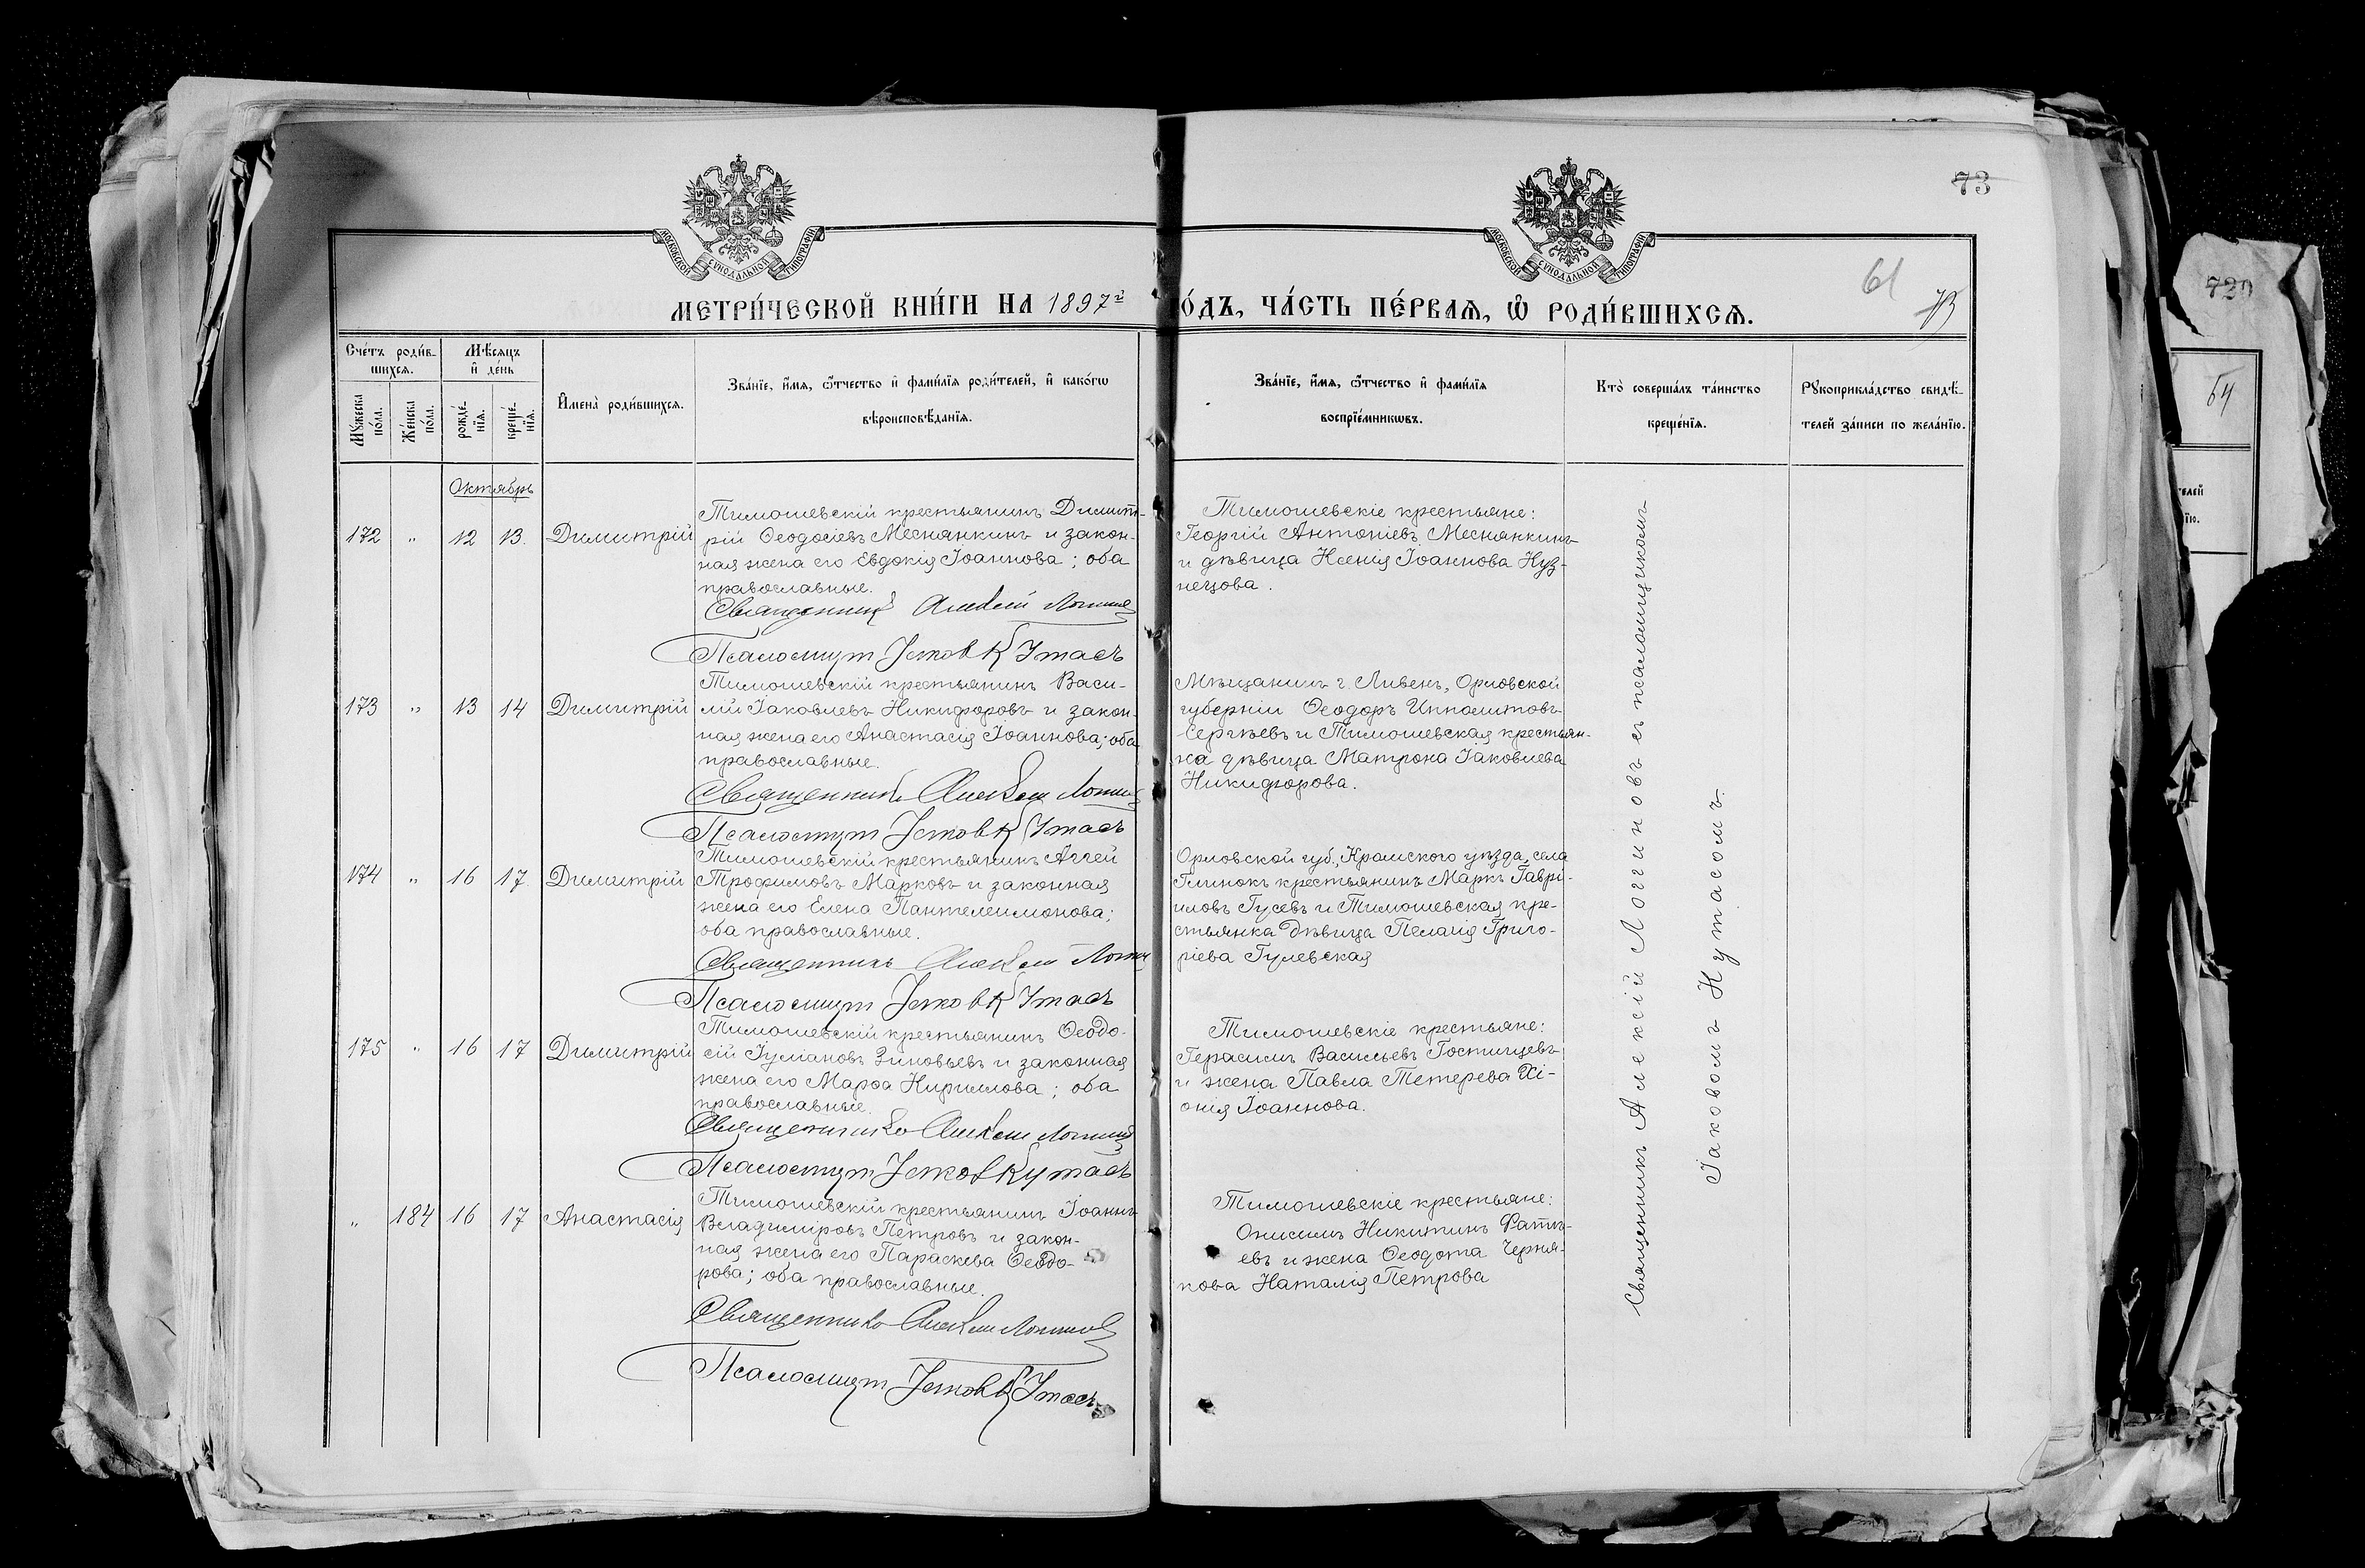 73
МОСКОВСКОЙ СѴНОДАЛЬНОЙ ТИПОГРАФІИ
МОСКОВСКОЙ СѴНОДАЛЬНОЙ ТИПОГРАФІИ
МЕТРИ́ЧЕСКОЙ КНИ́ГИ НА 1897й
О́ДЪ, ЧА́СТЬ ПЕ́РВАЯ, Ѿ РОДИ́ВШИХСЯ.
61
73
Сче́тъ роди́в-
шихся.
Мѣ́сяцъ
и҆ де́нь
Мꙋ́жеска
по́ла.
Же́нска
по́ла.
рожде́-
нїя.
креще́-
нїя.
И҆мена̀ роди́вшихся.
Зва́нїе, и҆́мя, ѻ҆́тчество и҆ фами́лїя роди́телей, и҆ како́гѡ
вѣроисповѣ́данїя.
Зва́нїе, и҆́мя, ѻ҆́тчество и҆ фами́лїя
воспрїе́мникѡвъ.
Кто̀ соверша́лъ та́инство
креще́нїя.
Рꙋкоприкла́дство свидѣ́-
телей за́писи по жела́нїю.
Октябрь
172 " 12 13. Димитрій
Тимошевскій крестьянинъ Димит-
рій Ѳеодосіевъ Меснянкинъ и закон-
ная жена его Евдокія Іоаннова; оба
православные.
Священникъ Алексій Логгинов
Псаломщик Іаков Кутасъ
Тимошевскіе крестьяне:
Георгій Антоніевъ Меснянкинъ
и дѣвица Ксенія Іоаннова Куз-
нецова.
173 " 13 14 Димитрій
Тимошевскій крестьянинъ Васи-
лій Іаковлевъ Никифоровъ и закон-
ная жена его Анастасія Іоаннова; оба
православные.
Священникъ Алексій Логгинов
Псаломщик Іаков Кутасъ
Мѣщанинъ г. Ливенъ, Орловской
губерніи Ѳеодоръ Ипполитовъ
Сергѣевъ и Тимошевская крестьян-
ка дѣвица Матрона Іаковлева
Никифорова.
174 " 16 17 Димитрій
Тимошевскій крестьянинъ Аггей
Трофимовъ Марковъ и законная
жена его Елена Пантелеимонова;
оба православные.
Священникъ Алексій Логгинов
Псаломщик Іаков Кутасъ
Орловской губ., Кромского уѣзда, села
Глинокъ крестьянинъ Маркъ Гаврі-
иловъ Гусевъ и Тимошевская кре-
стьянка дѣвица Пелагія Григо-
ріева Гулевская
175 " 16 17 Димитрій
Тимошевскій крестьянинъ Ѳеодо-
сій Іуліановъ Зиновьевъ и законная
жена его Марѳа Кириллова; оба
православные.
Священникъ Алексій Логгинов
Псаломщик Іаков Кутасъ
Тимошевскіе крестьяне:
Герасимъ Васильевъ Гостищевъ
и жена Павла Тетерева Хі-
онія Іоаннова.
" 184 16 17 Анастасія
Тимошевскій крестьянинъ Іоаннъ
Владиміровъ Петровъ и закон-
ная жена его Параскева Ѳеодо-
рова; оба православные.
Священникъ Алексій Логгинов
Псаломщик Іаков Кутасъ
Тимошевскіе крестьяне:
Онисимъ Никитинъ Фатѣ-
евъ и жена Ѳеодота Черня-
кова Наталія Петрова
Священникъ Алексій Логгиновъ съ псаломщикомъ
Іаковомъ Кутасомъ.
64
телей
їю.